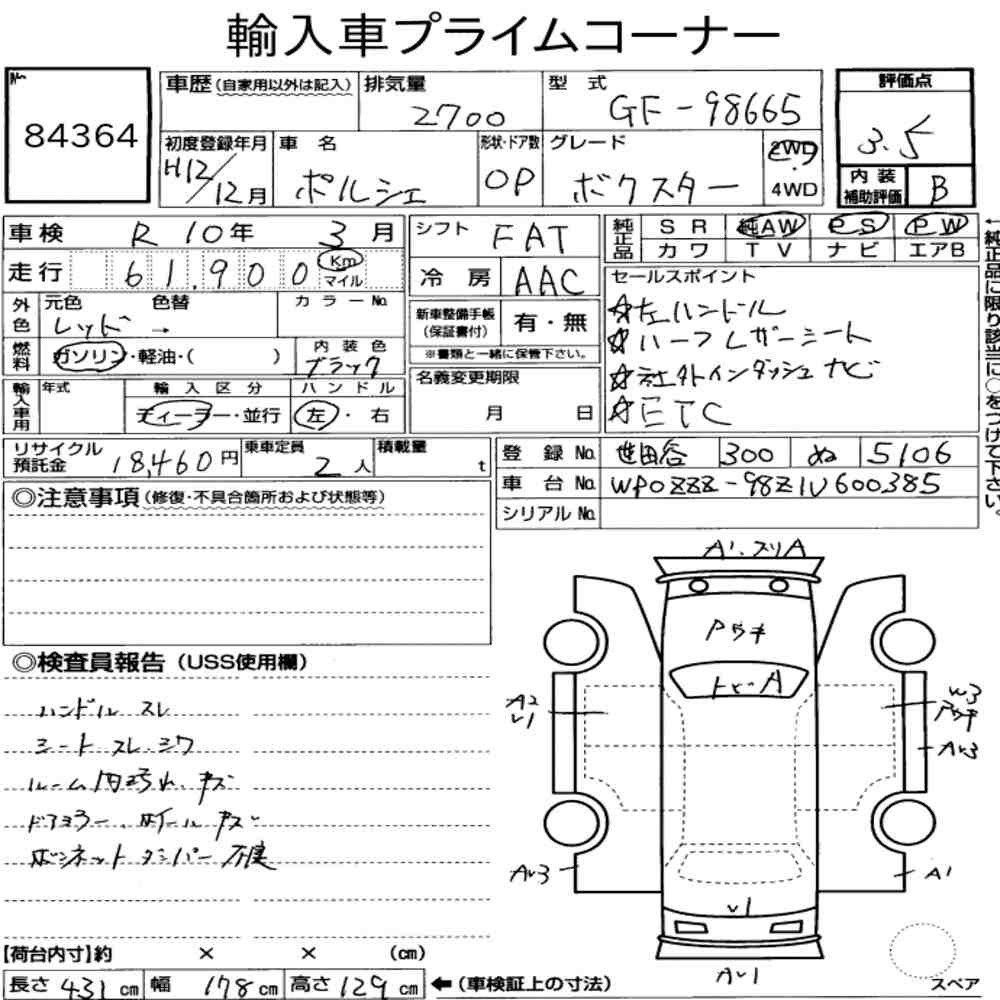 輸入車プライムコーナー
No.
84364
車歴(自家用以外は記入)
排気量
2700
型式
GF-98665
評価点
3.5
初度登録年月
H12/12月
車名
ポルシェ
形状・ドア数
OP
グレード
ボクスター
2WD
4WD
内装
補助評価
B
車検 R10年 3月
シフト FAT
純正品
SR 純AW PS PW
カワ TV ナビ エアB
走行 61,900 Km
マイル
冷房 AAC
セールスポイント
☆左ハンドル
☆ハーフレザーシート
☆社外インダッシュナビ
☆ETC
外色
元色 色替
カラーNo.
レッド →
新車整備手帳
(保証書付)
有・無
※書類と一緒に保管下さい。
燃料
ガソリン・軽油・( )
内装色
ブラック
名義変更期限
月 日
輸入車用
年式
輸入区分
ハンドル
ディーラー・並行
左・右
←純正品に限り該当に○をつけて下さい。
リサイクル
預託金
18,460円
乗車定員
2人
積載量
t
登録No. 世田谷 300 ぬ 5106
車台No. WP0ZZZ-98Z1U600385
シリアルNo.
◎注意事項(修復・不具合箇所および状態等)
A1.スリA
Pウキ
トビA
A2
U1
W3
Pウキ
AU3
AU3
A1
U1
AU1
スペア
◎検査員報告(USS使用欄)
ハンドル スレ
シート スレ.シワ
ルーム内汚れ.キズ
ドアミラー.ホイールキズ
ボンネットダンパー不良
【荷台内寸】約 × × (cm)
長さ 431cm 幅 178cm 高さ 129cm ←(車検証上の寸法)